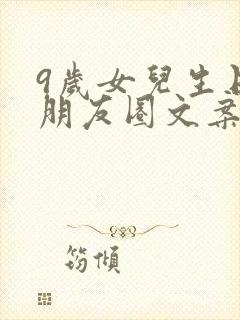 9歲女兒生日
朋友圈文案
筠傾